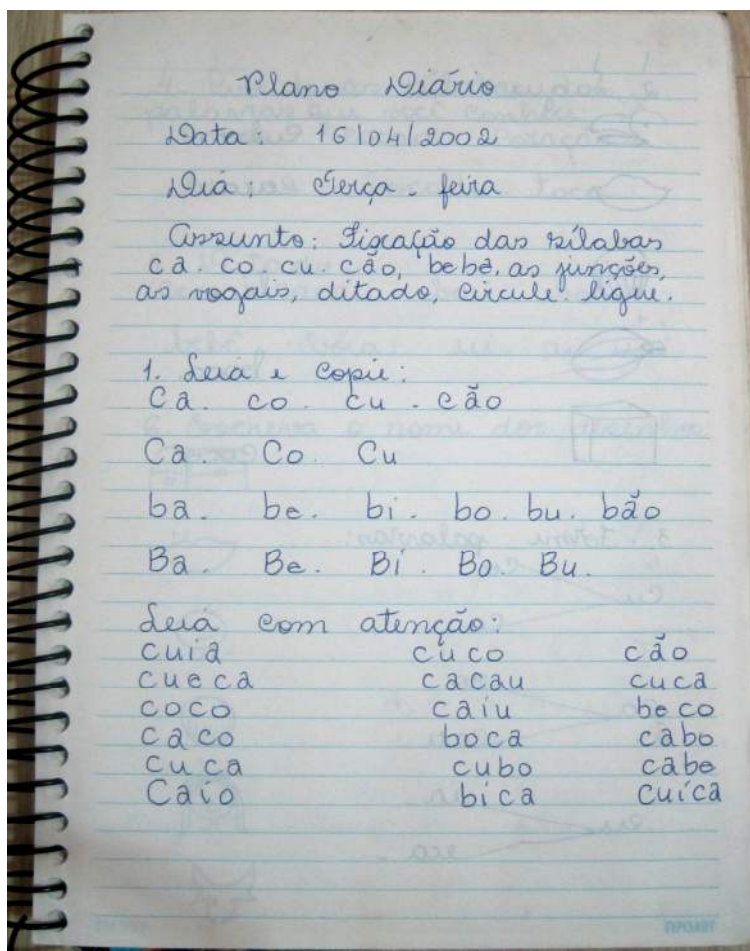 Plano Diário
Data: 16/04/2002
Dia: Terça-feira
Assunto: Fixação das sílabas
ca. co. cu. cão, bebê, as junções,
as vogais, ditado, circule. ligue.
1. Leia e copie:
Ca. co. cu. cão
Ca. Co. Cu
ba. be. bi. bo. bu. bão
Ba. Be. Bi. Bo. Bu.
Leia com atenção:
cuia cuco cão
cueca cacau cuca
coco caiu beco
caco boca cabo
cuca cubo cabe
Caio bica cuíca